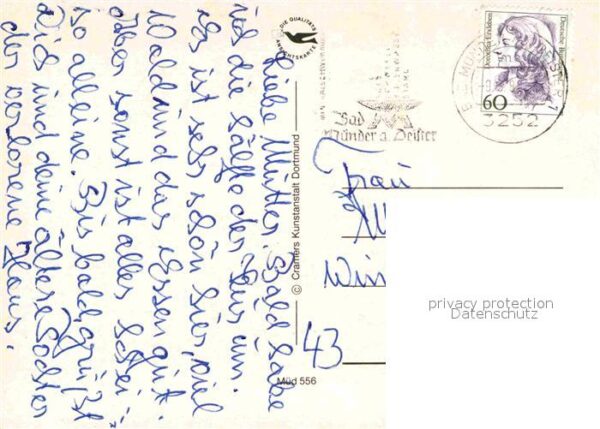 Liebe Mutter. Bald habe
ich die Hälfte der Kur um.
es ist sehr schön hier, viel
Wald und das Essen gut.
aber sonst ist alles
so alleine. Bis bald, grüßt
Dich und deine ältere Tochter
der verlorene Klaus.
DIE QUALITÄTS
ANSICHTSKARTE
© Cramers Kunstanstalt Dortmund
Müd 556
Bad
Münder a. Deister
3252
Deutsche Bundespost
60
Frau
Win
43
privacy protection
Datenschutz